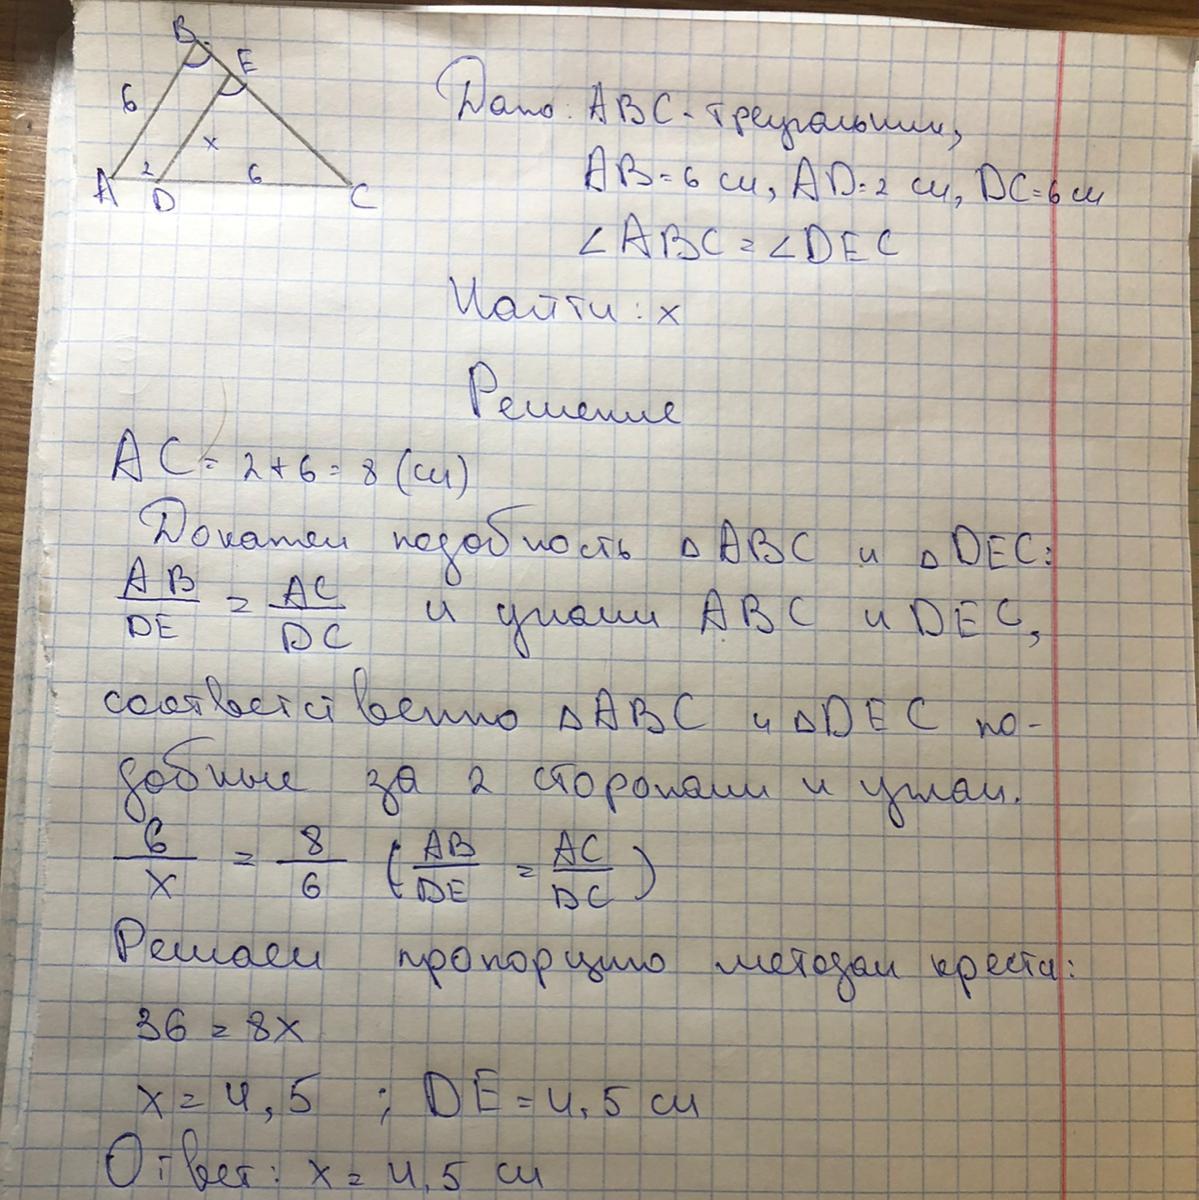 B E
6 x
A 2 D 6 C
Дано: ABC - треугольник,
AB = 6 см, AD = 2 см, DC = 6 см
∠ABC = ∠DEC
Найти: x
Решение
AC = 2 + 6 = 8 (см)
Докажем подобность △ABC и △DEC:
AB/DE = AC/DC и углами ABC и DEC,
соответственно △ABC и △DEC по-
добные за 2 сторонами и углом.
6/x = 8/6 (AB/DE = AC/DC)
Решаем пропорцию методом креста:
36 = 8x
x = 4,5 ; DE = 4,5 см
Ответ: x = 4,5 см